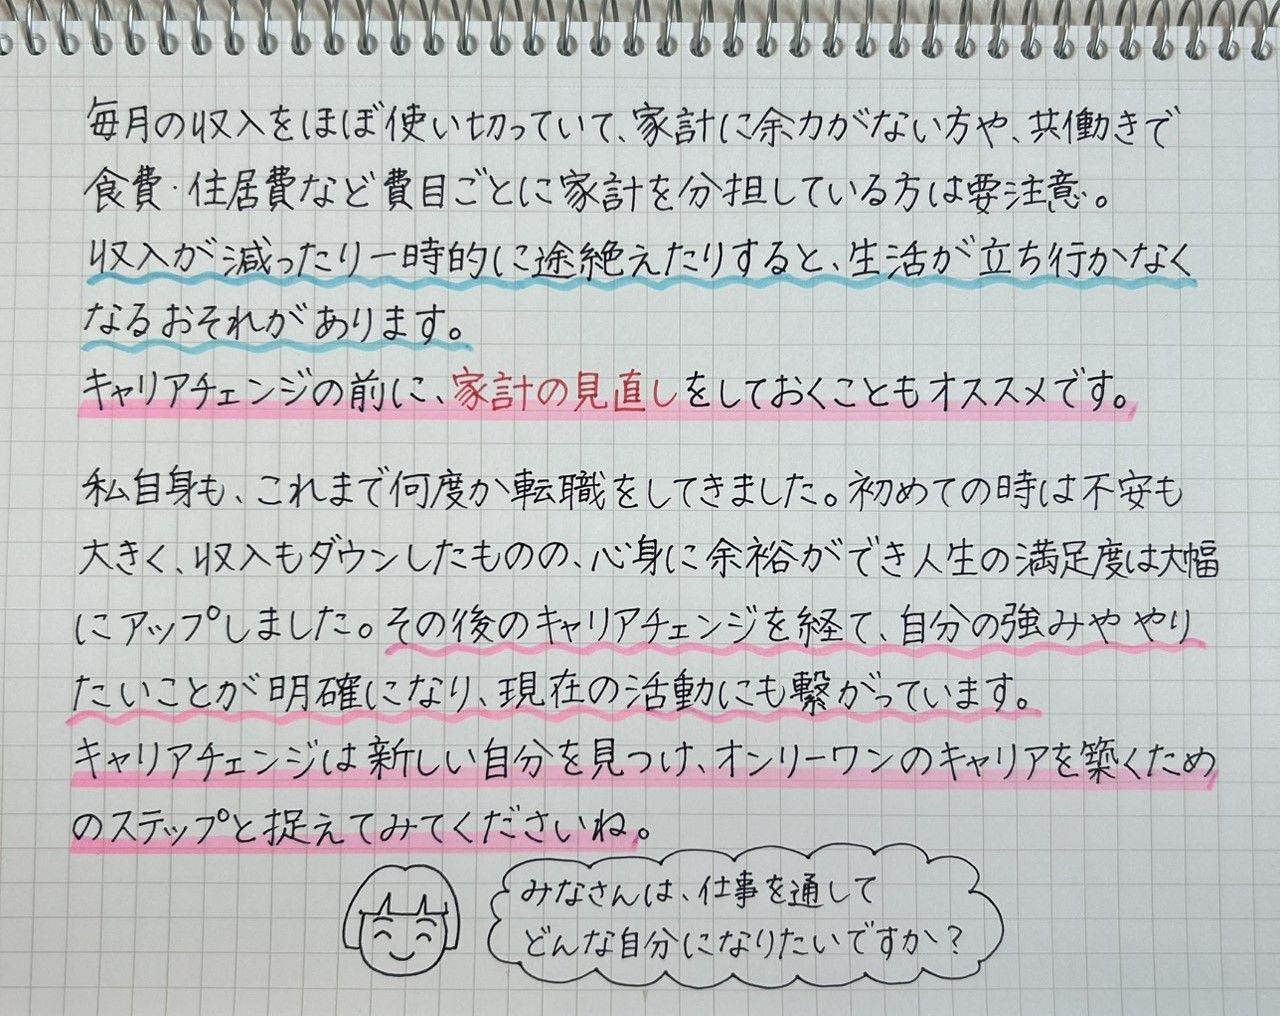 毎月の収入をほぼ使い切っていて、家計に余力がない方や、共働きで
食費・住居費など費目ごとに家計を分担している方は要注意。
収入が減ったり一時的に途絶えたりすると、生活が立ち行かなく
なるおそれがあります。
キャリアチェンジの前に、家計の見直しをしておくこともオススメです。
私自身も、これまで何度か転職をしてきました。初めての時は不安も
大きく、収入もダウンしたものの、心身に余裕ができ人生の満足度は大幅
にアップしました。その後のキャリアチェンジを経て、自分の強みややり
たいことが明確になり、現在の活動にも繋がっています。
キャリアチェンジは新しい自分を見つけ、オンリーワンのキャリアを築くため
のステップと捉えてみてくださいね。
みなさんは、仕事を通して
どんな自分になりたいですか？